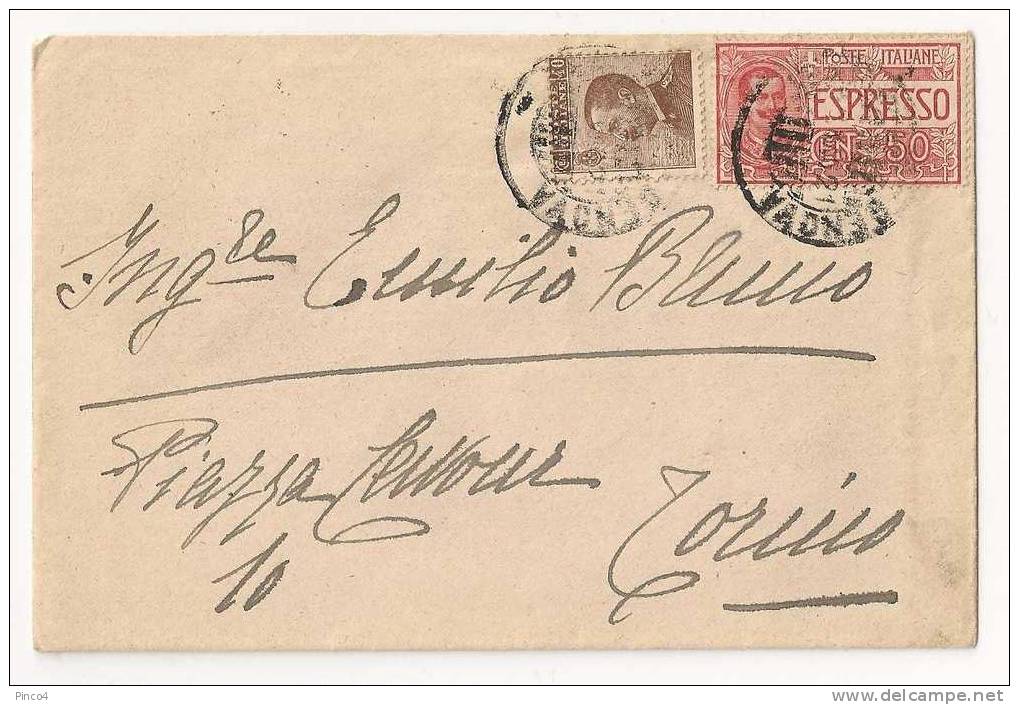 POSTE ITALIANE
ESPRESSO
CENT. 50
GENOVA
GENOVA
Ing.re Emilio Bruno
Piazza Cavour
10
Torino
Pinco4
www.delcampe.net